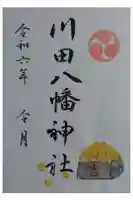 川田八幡神社
令和六年 令月